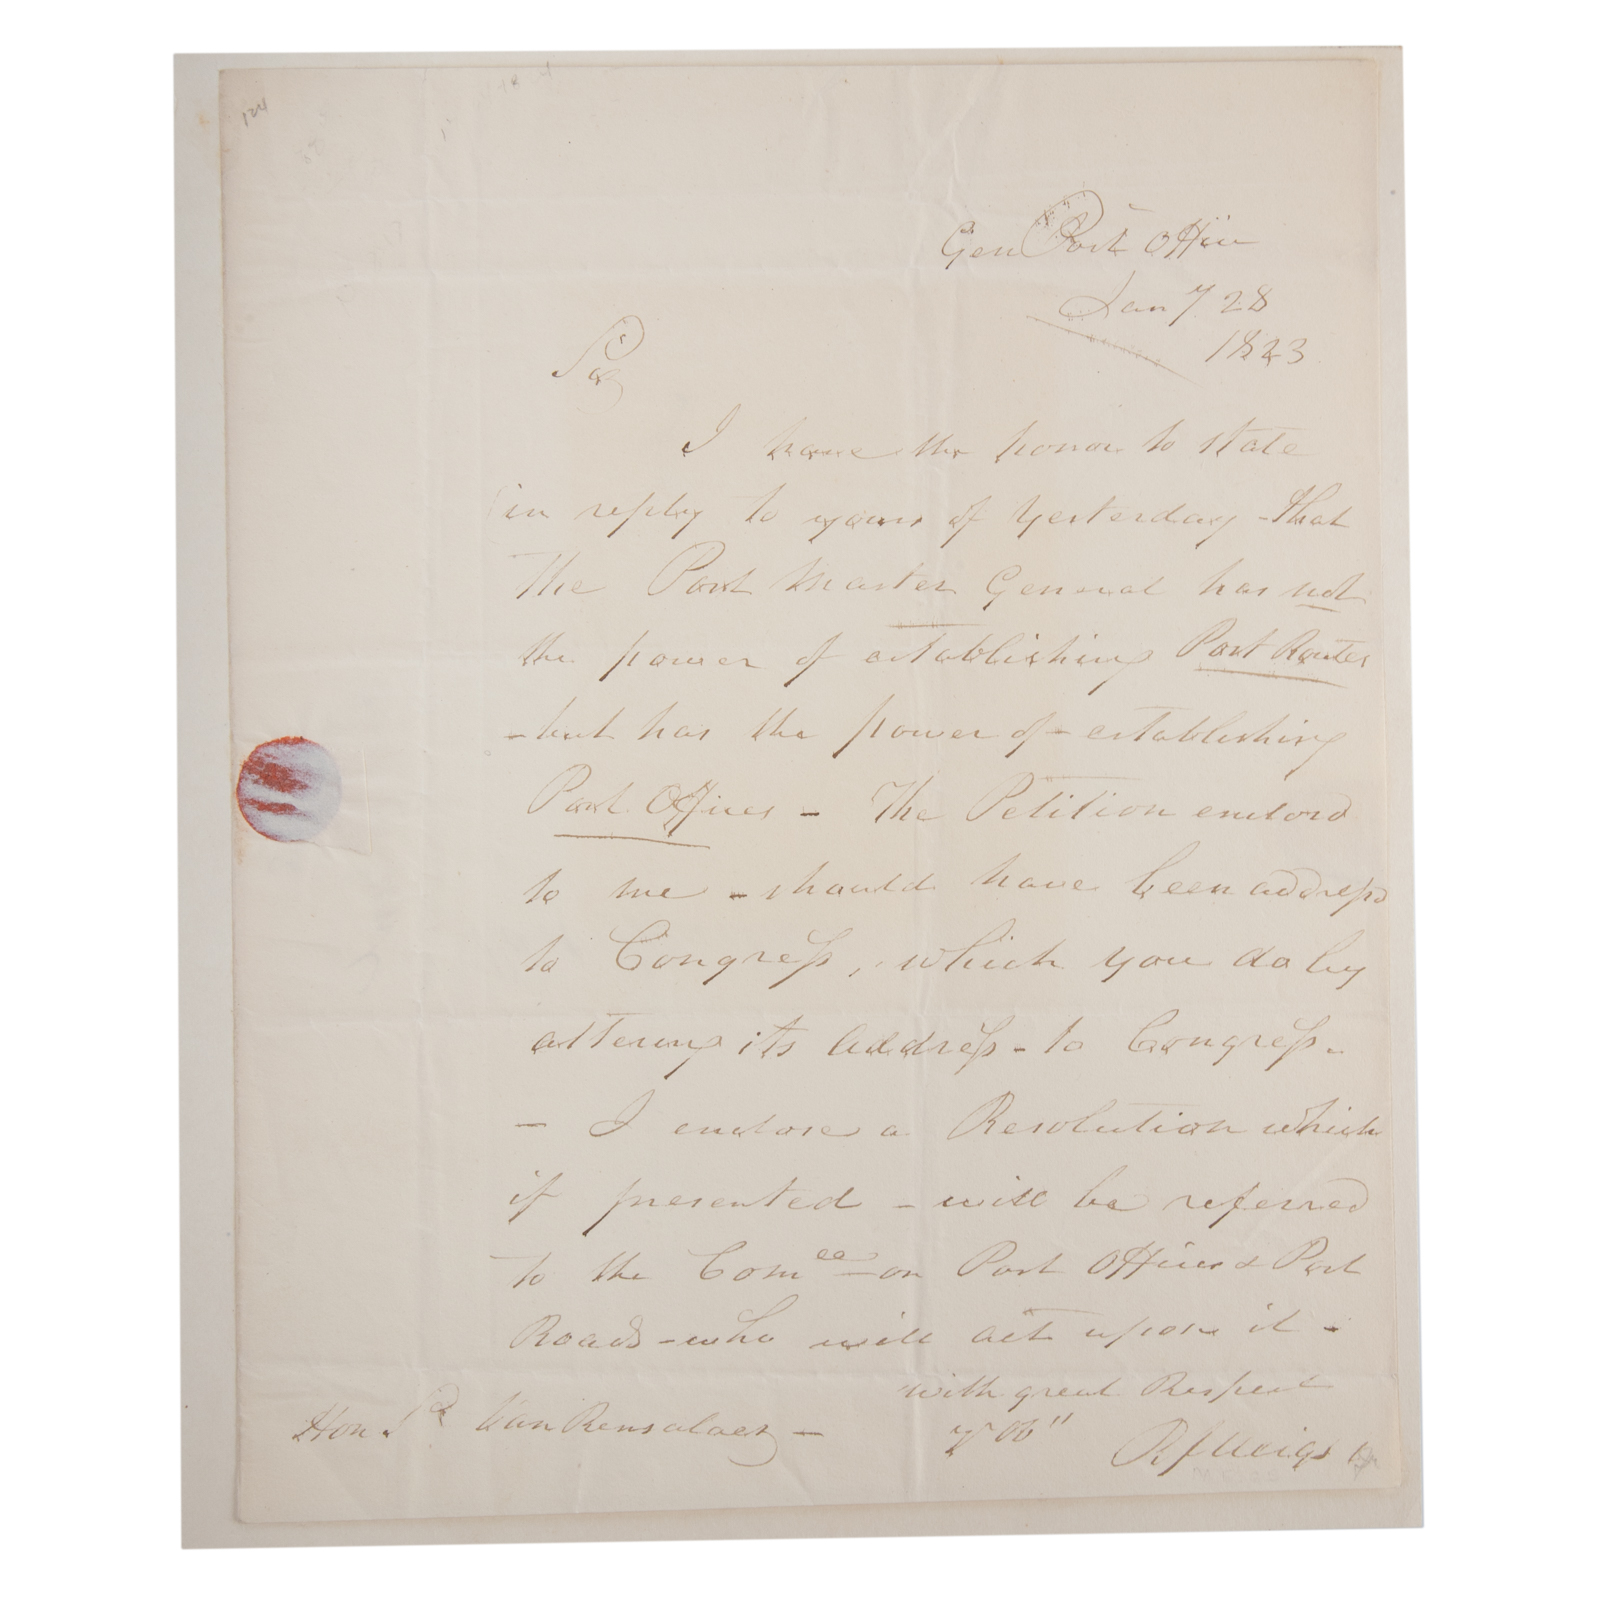 124
Gen Post Office
Jany 28
1823
Sir
I have the honor to state
in reply to yours of yesterday - that
The Post Master General has not
the power of establishing Post Routes
- but has the power of - establishing
Post Offices - The Petition enclosd
to me - should have been addressd
to Congress, which you do by
altering its address - to Congress -
- I enclose a Resolution which
if presented - will be referred
to the Comee on Post Offices & Post
Roads - who will act upon it -
with great Respect
Yr Ob"
Hon Sn Van Rensalaer -
R J Meigs Jr